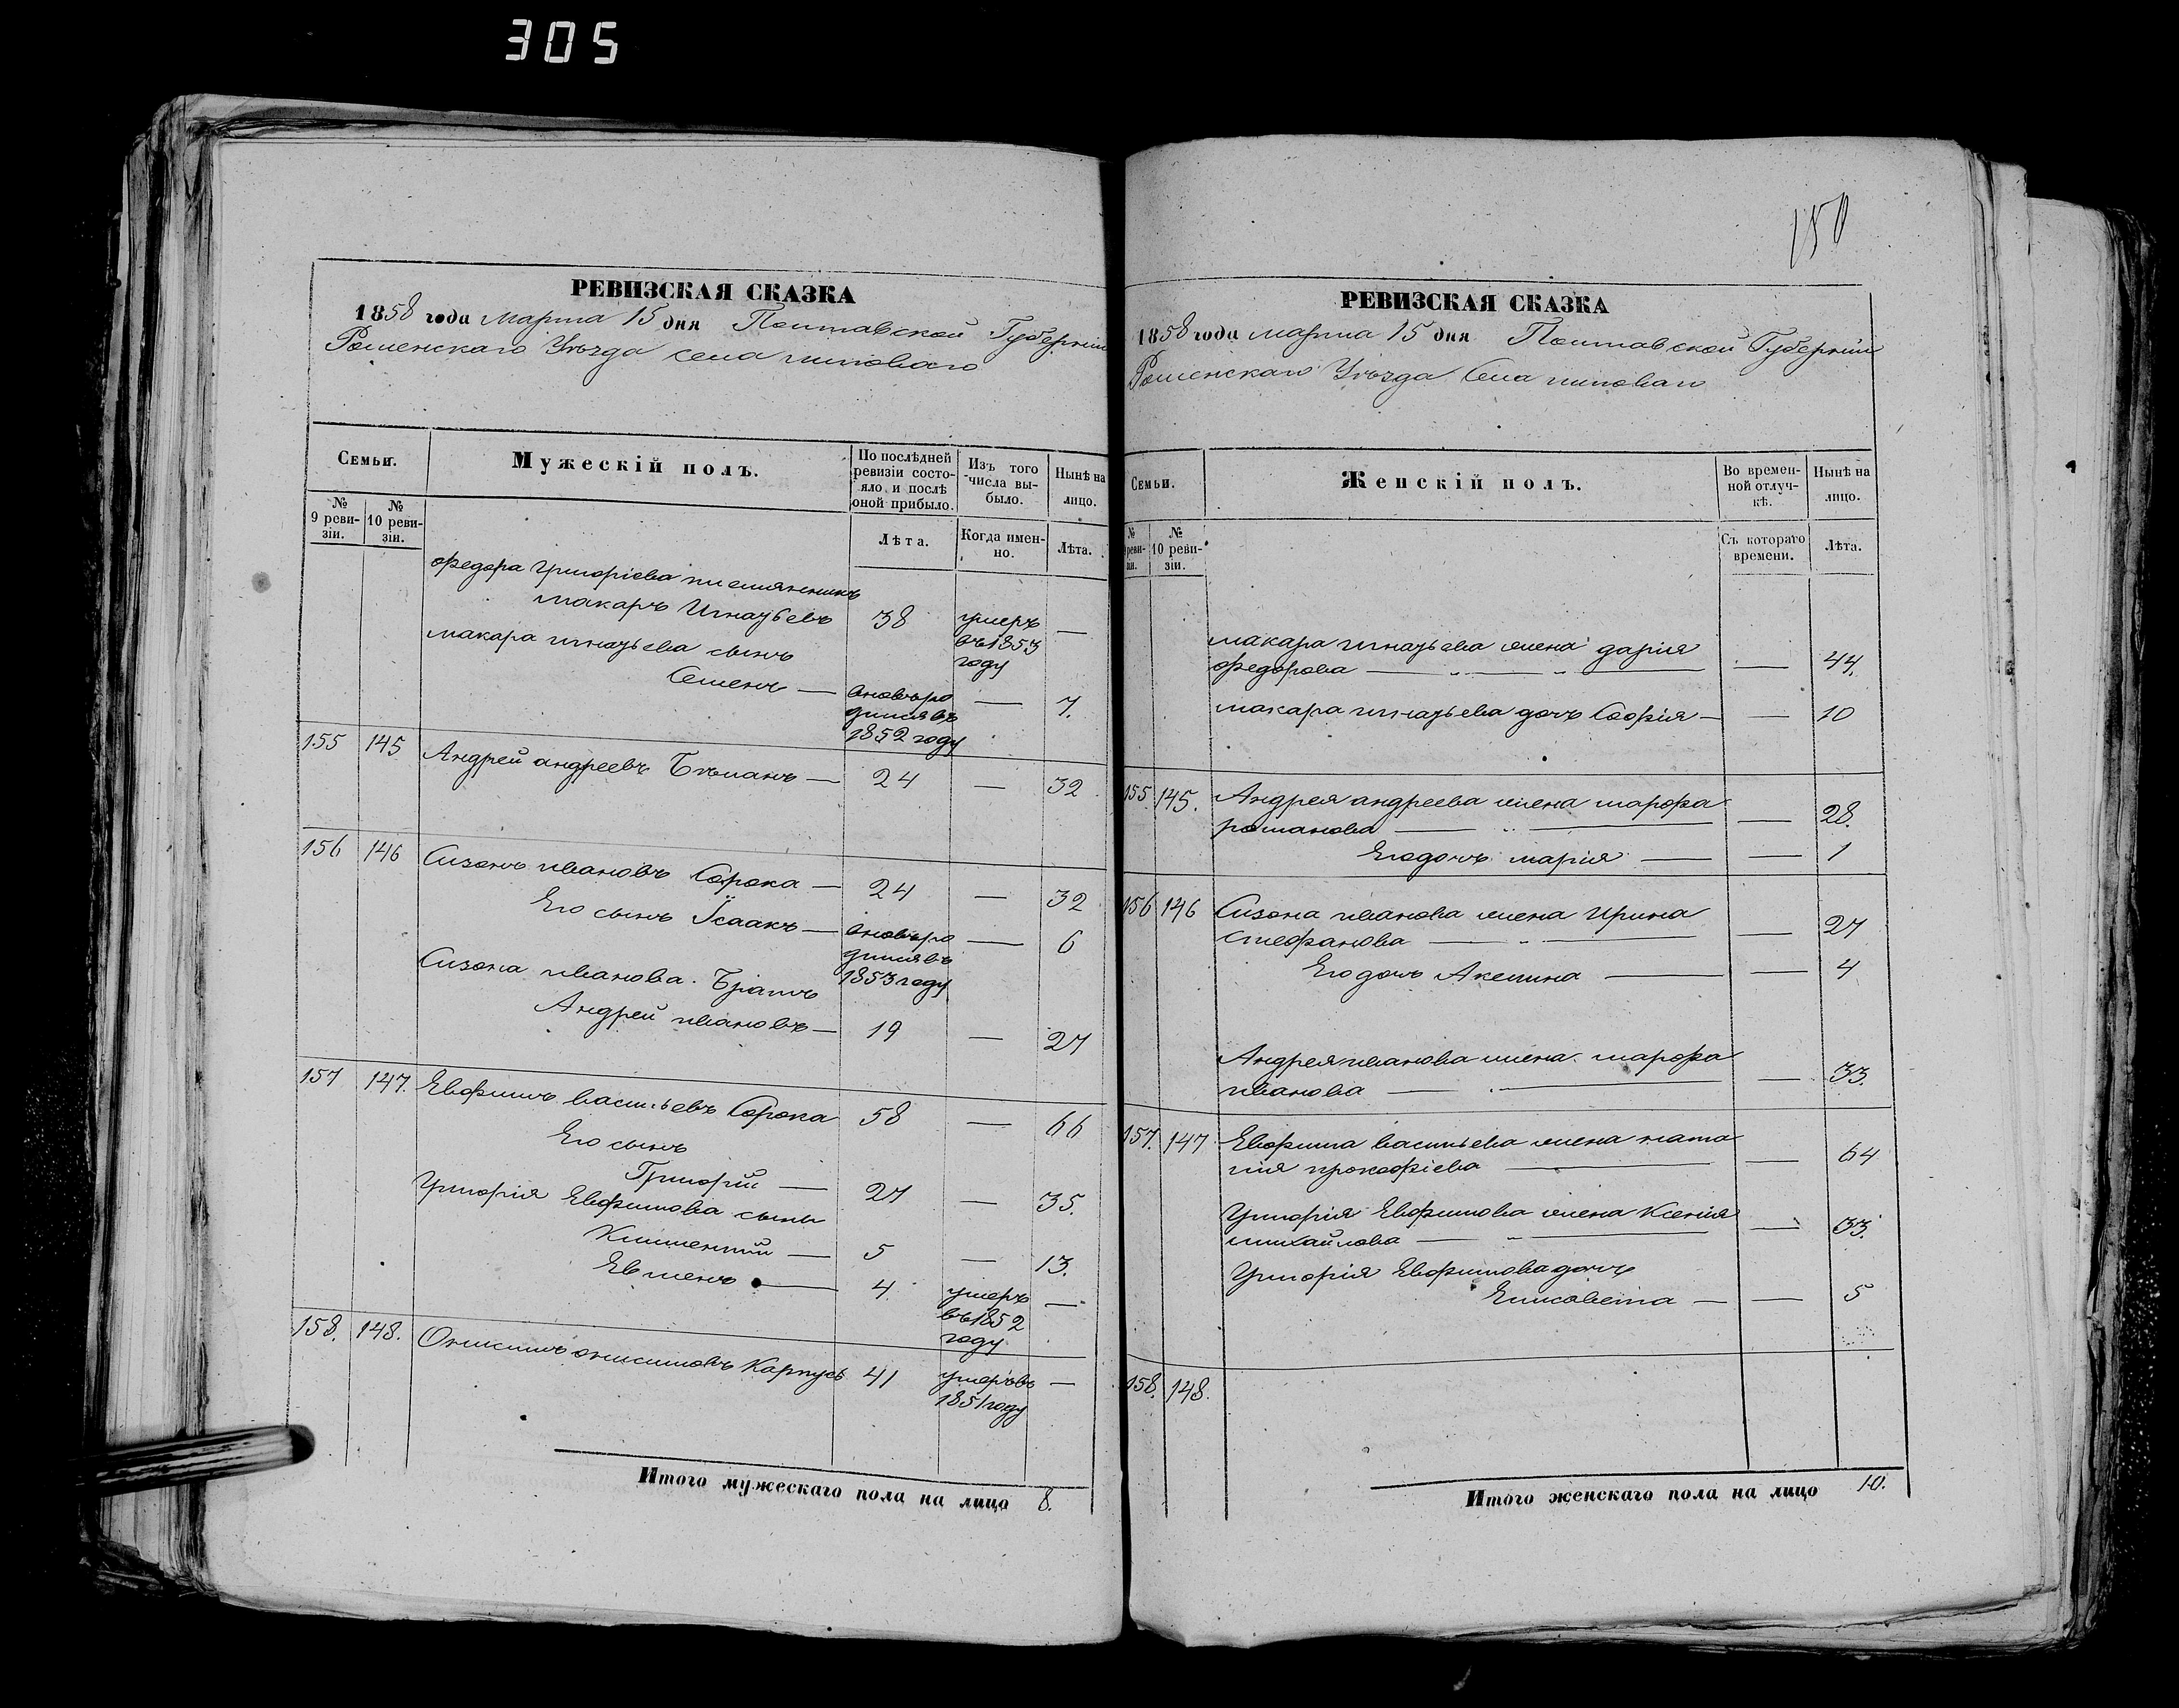 305
150
РЕВИЗСКАЯ СКАЗКА
1858 года марта 15 дня Полтавской Губерніи
Роменскаго Уѣзда села липоваго
Семьи.
Мужескій полъ.
По послѣдней ревизіи состо-
яло и послѣ
оной прибыло.
Изъ того
числа вы-
было.
Нынѣ на
лицо.
№
9 реви-
зіи.
№
10 реви-
зіи.
Лѣта.
Когда имен-
но.
Лѣта.
Федора Григоріева племянникъ
макаръ Игнатьевъ 38 умеръ въ 1853 году —
макара игнатьева сынъ
Семенъ — вновь ро
дился въ
1852 году — 7.
155 145 Андрей андреевъ Бѣланъ — 24 — 32
156 146 Сизонъ ивановъ Сорока — 24 — 32
Его сынъ Ісаакъ — вновь ро
дился въ
1853 году — 6
Сизона иванова Братъ
Андрей ивановъ — 19 — 27
157 147. Евфимъ васильевъ Сорока 58 — 66
Его сынъ
Григорій — 27 — 35.
Григорія Евфимова сыны
Климентій — 5 — 13.
Евменъ — 4 умеръ
въ 1852
году —
158. 148. Онисимъ онисимовъ Карпусь 41 умеръ въ
1851 году —
Итого мужескаго пола на лицо 8.
РЕВИЗСКАЯ СКАЗКА
1858 года марта 15 дня Полтавской Губерніи
Роменскаго Уѣзда Села липоваго
Семьи.
Женскій полъ.
Во времен-
ной отлуч-
кѣ.
Нынѣ на
лицо.
№
реви-
зіи.
№
10 реви-
зіи.
Съ котораго
времени.
Лѣта.
макара игнатьева жена дарія
федорова — " — " — — 44.
макара игнатьева дочь Софія — — 10
155. 145. Андрея андреева жена марфа
романова — " — — 28.
Его дочь марія — — 1
156 146 Сизона иванова жена Ирина
стефанова — " — — 27
Его дочь Акелина — — 4
Андрея иванова жена марфа
иванова — " — — 33.
157. 147 Евфима васильева жена ната
лія прокофіева — — 64
Григорія Евфимова жена Ксенія
михайлова — " — — 33.
Григорія Евфимова дочь
Елисавета — — 5
158. 148.
Итого женскаго пола на лицо 10.